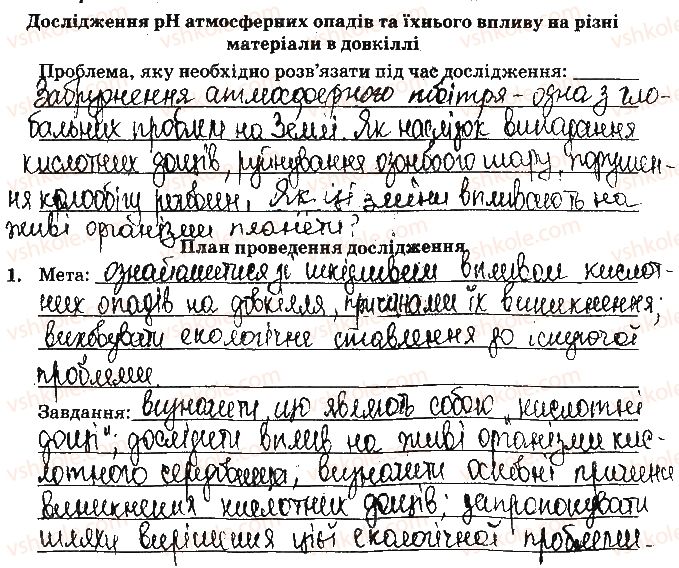 Дослідження рН атмосферних опадів та їхнього впливу на різні
матеріали в довкіллі
Проблема, яку необхідно розв'язати під час дослідження:
Забруднення атмосферного повітря - одна з гло-
бальних проблем на Землі. Як наслідок випадання
кислотних дощів, руйнування озонового шару, порушен-
ня колообігу речовин. Як ці зміни впливають на
живі організми планети?
План проведення дослідження
1. Мета: ознайомитися зі шкідливим впливом кислот-
них опадів на довкілля, причинами їх виникнення;
виховувати екологічне ставлення до існуючої
проблеми.
Завдання: визначити, що являють собою "кислотні
дощі"; дослідити вплив на живі організми кис-
лотного середовища; визначити основні причини
виникнення кислотних дощів; запропонувати
шляхи вирішення цієї екологічної проблеми.